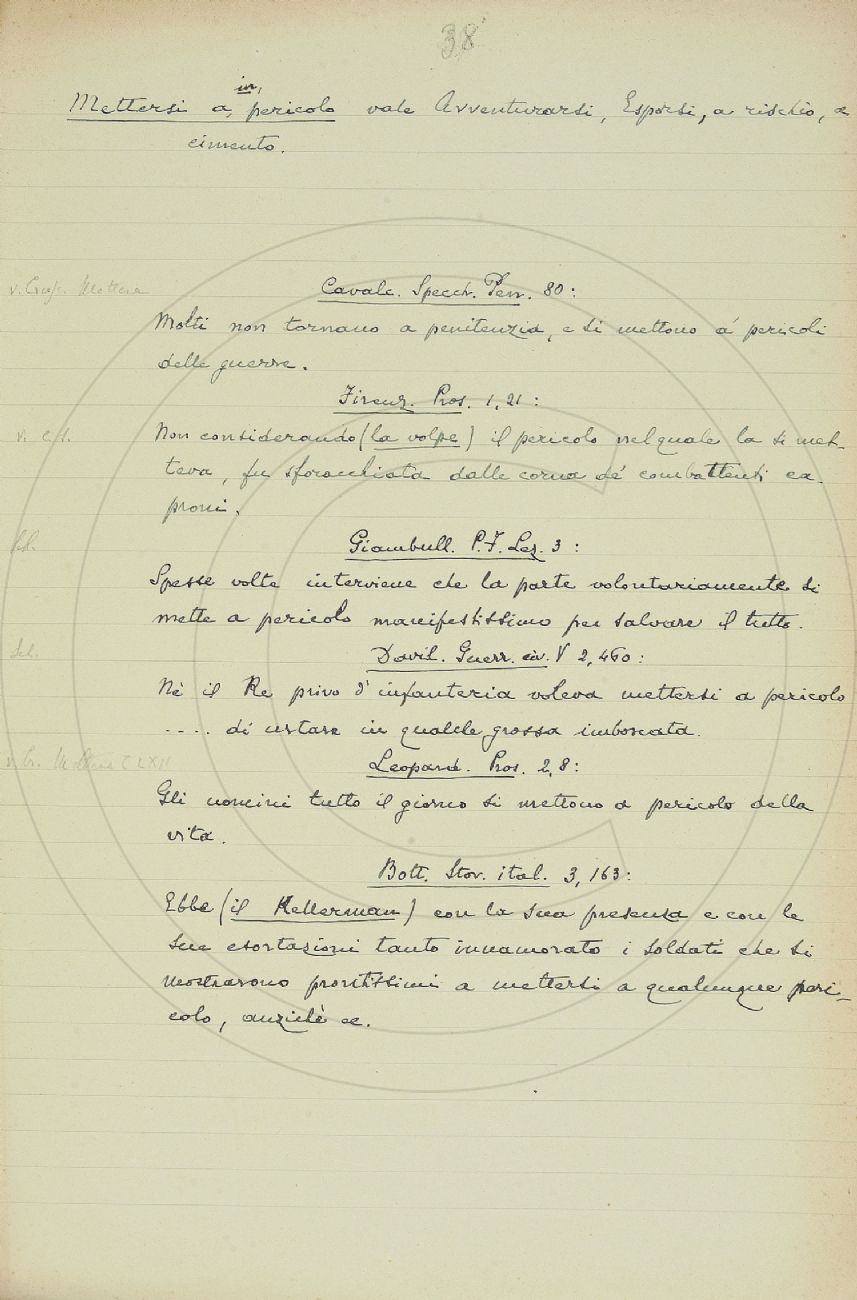 38
in,
Mettersi a, pericolo vale Avventurarsi, Esporsi, a rischio, a
cimento.
Cavalc. Specch. Penn. 80:
Molti non tornano a penitenzia, e si mettono a' pericoli
delle guerre.
Firenz. Pros. 1,21:
v. c. s.
Non considerando (la volpe) il pericolo nel quale la si met-
teva, fu sforacchiata dalle corna de' combattenti ca-
proni.
Giambull. P.F. Lez. 3:
Spesse volte interviene che la parte volontariamente si
mette a pericolo manifestissimo per salvare il tutto.
Davil. Guerr. civ. V 2,460:
Nè il Re privo d'infanteria voleva mettersi a pericolo
.... di urtare in qualche grossa imboscata.
Leopard. Pros. 2,8:
Gli uomini tutto il giorno si mettono a pericolo della
vita.
Bott. Stor. ital. 3,163:
Ebbe (il Kellerman) con la sua presenza e con le
sue esortazioni tanto innamorato i soldati che si
mostrarono prontissimi a mettersi a qualunque peri-
colo, anzichè ec.